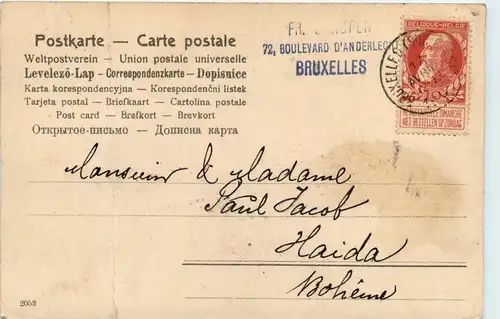 Postkarte — Carte postale
Weltpostverein — Union postale universelle
Levelező-Lap - Correspondenzkarte - Dopisnice
Karta korespondencyjna — Korespondenčni listek
Tarjeta postal — Briefkaart — Cartolina postale
Post card — Brefkort — Brevkort
Открытое-письмо — Дописна карта
FR.
72, BOULEVARD D'ANDERLECHT
BRUXELLES
BELGIQUE-BELGIË
NE PAS LIVRER LE DIMANCHE
NIET BESTELLEN OP ZONDAG
Monsieur & Madame
Paul Jacob
Haida
Bohême
2053